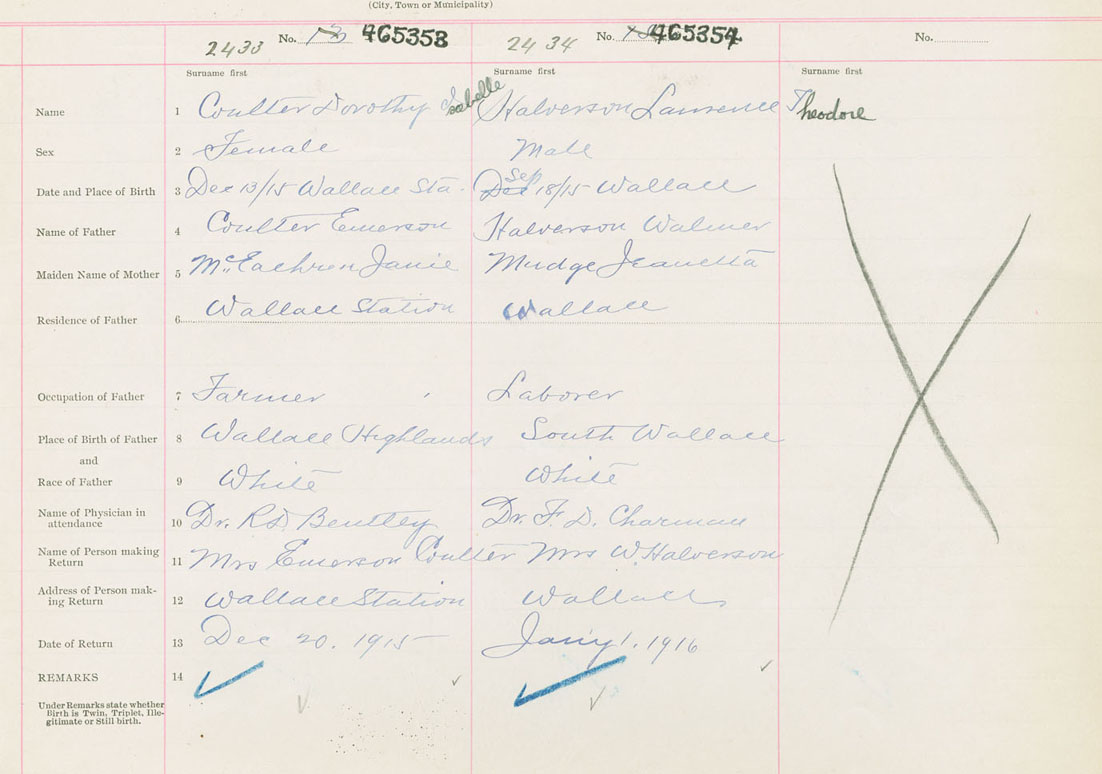 (City, Town or Municipality)
2433 No. 465353 2434 No. 465354 No.
Surname first Surname first Surname first
Name 1 Coulter Dorothy Isabelle Halverson Laurence Theodore
Sex 2 Female Male
Date and Place of Birth 3 Dec 13/15 Wallace Sta. Dec Sep 18/15 Wallace
Name of Father 4 Coulter Emerson Halverson Walmer
Maiden Name of Mother 5 McEachren Janie Mudge Jeanetta
Residence of Father 6 Wallace Station Wallace
Occupation of Father 7 Farmer Laborer
Place of Birth of Father 8 Wallace Highlands South Wallace
and
Race of Father 9 White White
Name of Physician in
attendance 10 Dr. R.D. Bentley Dr. F. D. Charman
Name of Person making
Return 11 Mrs Emerson Coulter Mrs W. Halverson
Address of Person mak-
ing Return 12 Wallace Station Wallace
Date of Return 13 Dec 20. 1915 Jany 1. 1916
REMARKS 14
Under Remarks state whether
Birth is Twin, Triplet, Ille-
gitimate or Still birth.